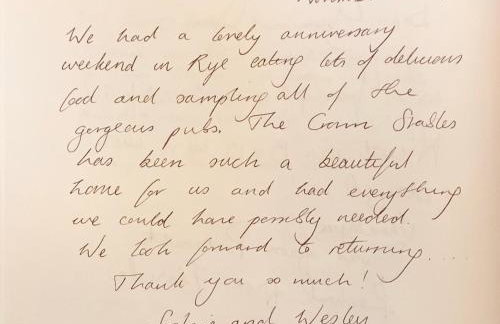 We had a lovely anniversary
weekend in Rye eating lots of delicious
food and sampling all of the
gorgeous pubs. The Crown Stables
has been such a beautiful
home for us and had everything
we could have possibly needed.
We look forward to returning...
Thank you so much!
and Wesley